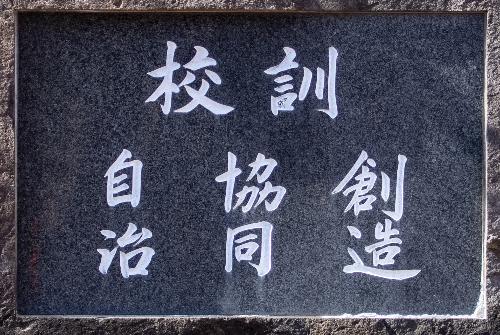 校訓
自治
協同
創造